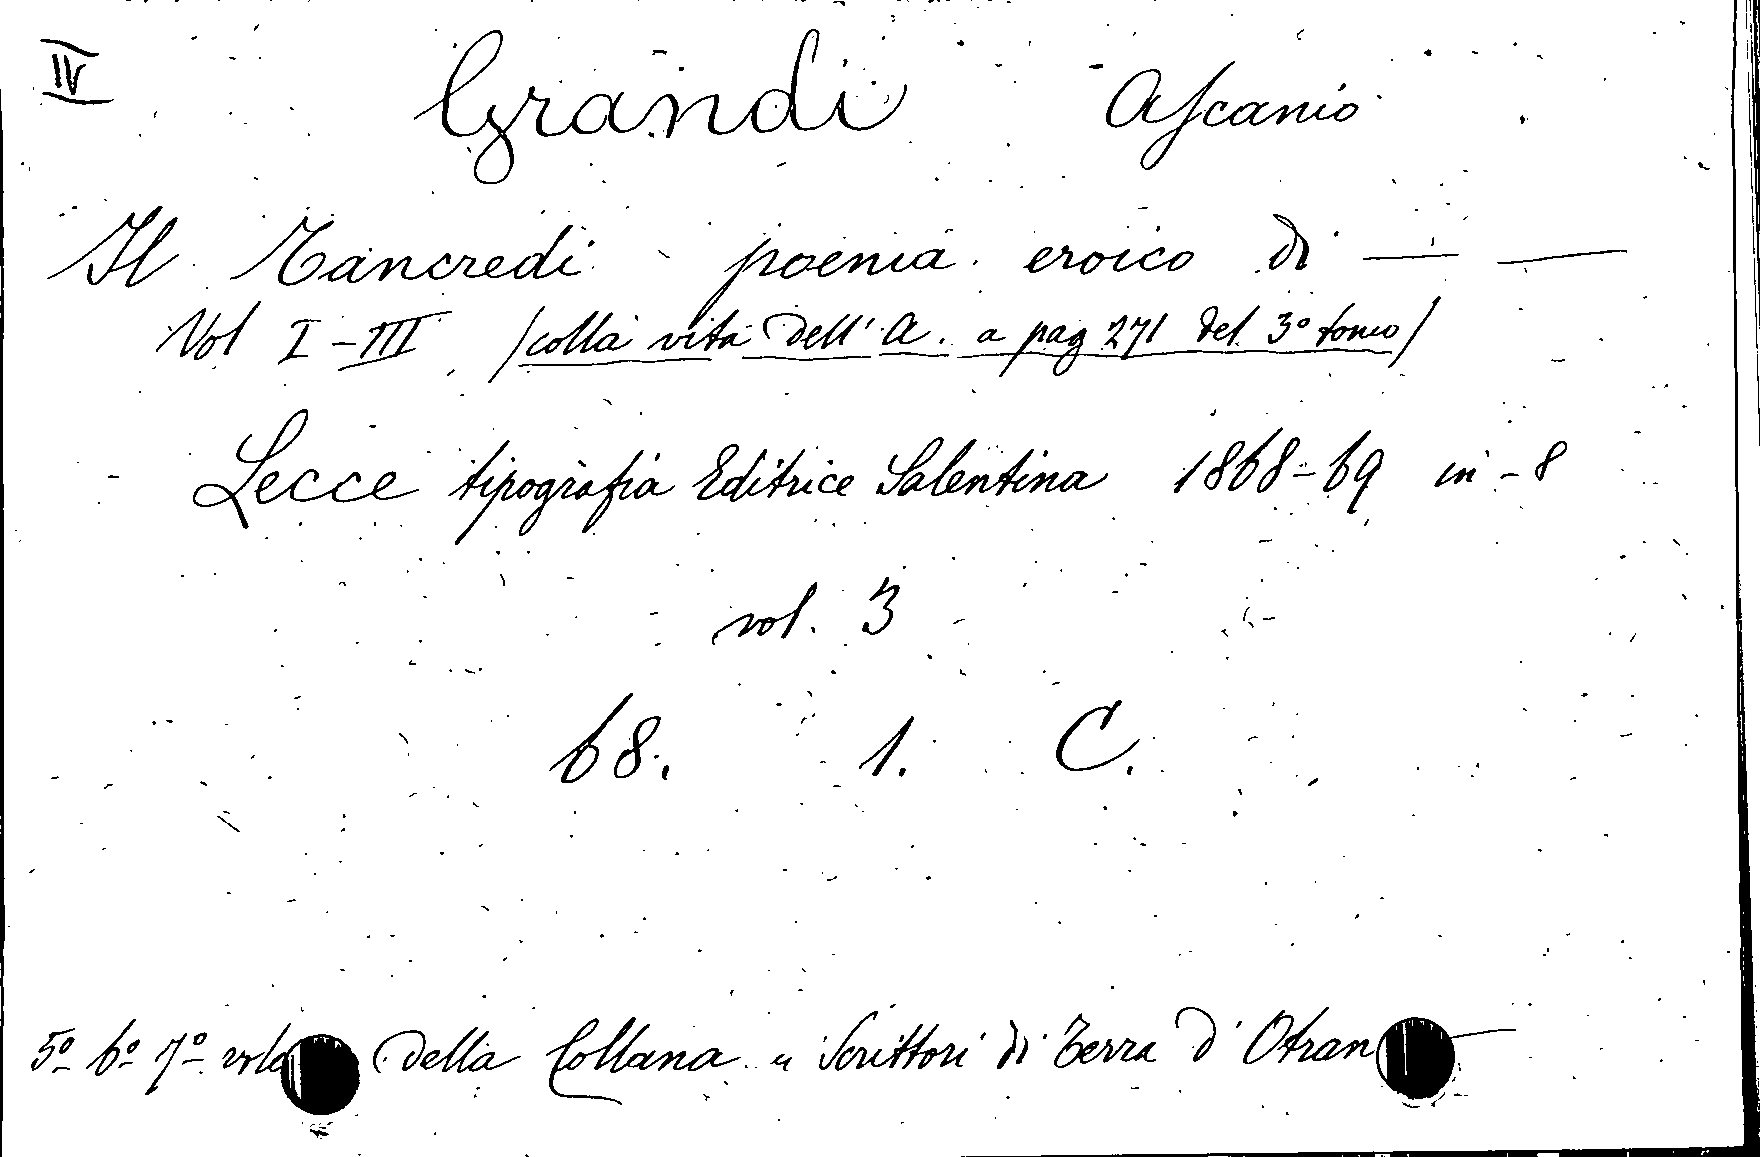 IV
Grandi Ascanio
Il Tancredi poema eroico di — —
Vol I-III /colla vita dell' A. a pag 271 del 3º tomo/
Lecce tipografia Editrice Salentina 1868-69 in-8
vol. 3
68. 1. C.
5º 6º 7º della Collana "Scrittori di Terra d'Otran